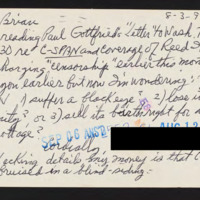 Brian 8-3-9
reading Paul Gottfried's "Letter to Wash. T
30 re C-SPAN and coverage of Reed I
charging "censorship" earlier this mon
on earlier but now I'm wondering:
1) suffer a black eye? 2) lose i
ity? or 3) sell its birthright for
ottage?
SEP 06 ANS'D
AUG 12
Cordially
lacking details my money is that C
cruised in a blind-siding.